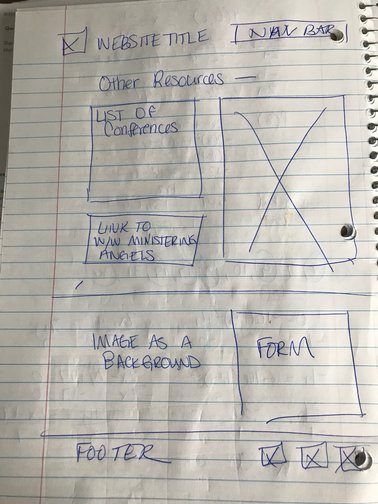 WEBSITE TITLE
NAV BAR
Other Resources —
LIST OF
Conferences
LINK TO
W/W MINISTERING
ANGELS
IMAGE AS A
BACKGROUND
FORM
FOOTER